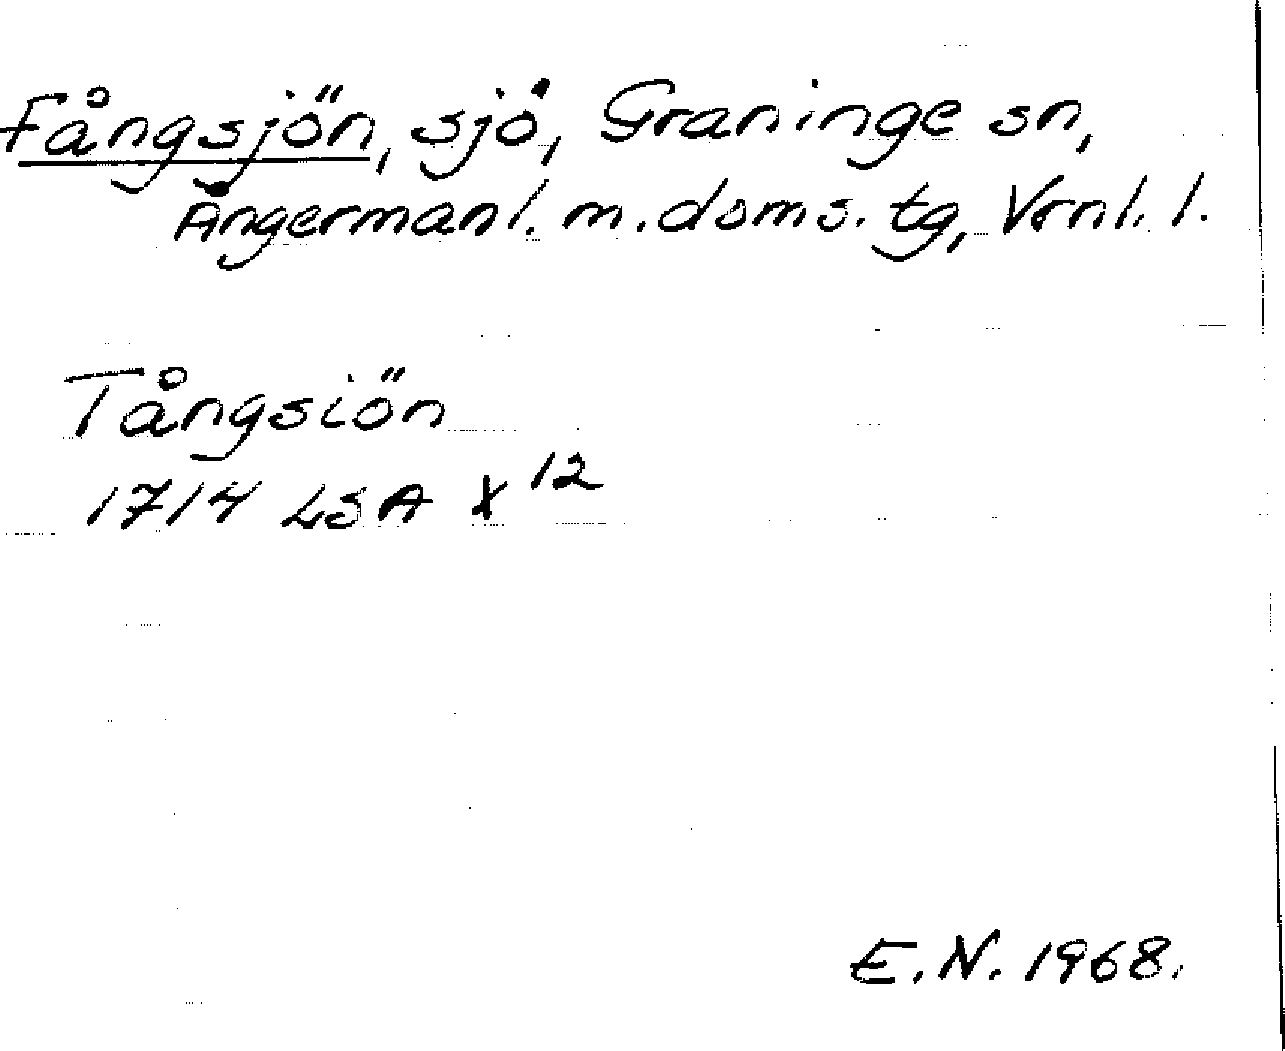 Fångsjön, sjö, Graninge sn,
Ångermanl. m. doms. tg, Vrnl. l.
Tångsiön
1714 LSA X 12
E.N. 1968.